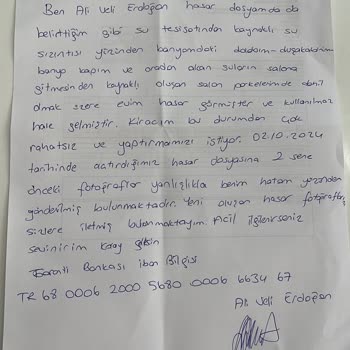 Ben Ali Veli Erdoğan hasar dosyamda da
belirttiğim gibi su tesisatından kaynaklı su
sızıntısı yüzünden banyomdaki
banyo kapım ve oradan akan suların salona
gitmesinden kaynaklı oluşan salon parkelerimde
olmak üzere evim hasar görmüştür ve kullanılmaz
hale gelmiştir. Kiracım bu durumdan çok
rahatsız ve yaptırmamızı istiyor. 02.10.2024
tarihinde açtırdığımız hasar dosyasına 2 sene
önceki fotoğraflar yanlışlıkla benim hatam yüzünden
gönderilmiş bulunmaktadır. Yeni oluşan hasar fotoğrafları
sizlere iletmiş bulunmaktayım. Acil ilgilenirseniz
sevinirim kolay gelsin
Garanti Bankası iban Bilgisi
TR 68 0006 2000 5680 0006 6634 67
Ali Veli Erdoğan